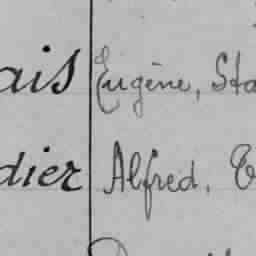 ais Eugène, Sta
dier Alfred. E